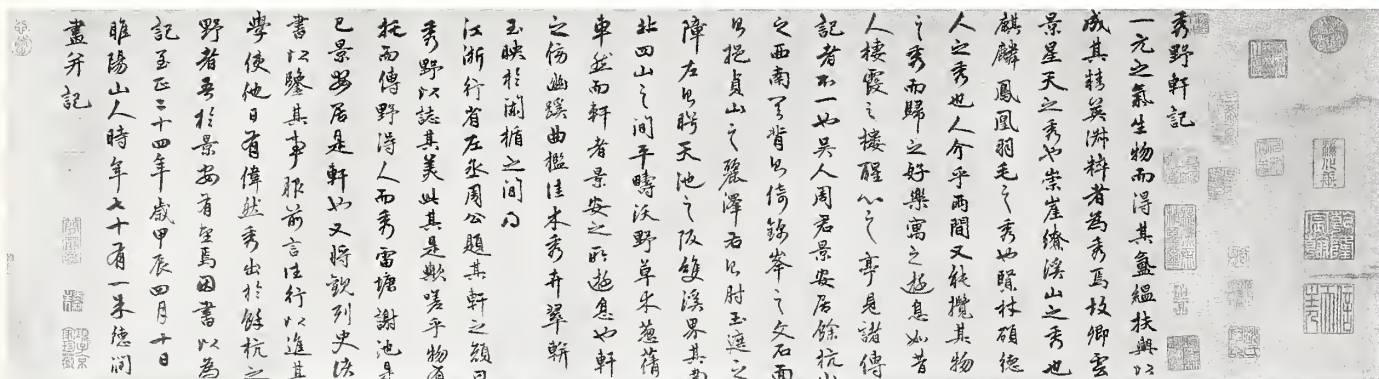 秀野軒記
一元之氣生物而得其盤縕扶輿以
成其精英淋粹者為秀焉故卿雲
景星天之秀也崇崖繚溪山之秀也
麒麟鳳凰羽毛之秀也賢材碩德
人之秀也人介乎两間又能攬其物
之秀而歸之好樂寓之遊息如昔
人棲霞之樓醒心之亭見諸傳
記者不一也吳人周君景安居餘杭山
之西南其背則倚錦峯之文石面
則挹貞山之麗澤右則肘玉遮之
障左則盼天池之阪雙溪界其南
北四山之間平疇沃野草木葱蒨
車然而軒者景安之所遊息也軒
之傍幽蹊曲檻佳木秀卉翠軿
玉映於闌楯之間
江浙行省左丞周公題其軒之顏曰
秀野以誌其美此其是歟嗟乎物有
托而傳野得人而秀雷塘謝池是
已景安居是軒也又將觀列史傳
書以鑒其事服前言往行以進其
學使他日有偉然秀出於餘杭之
野者吾於景安有望焉因書以為
記至正二十四年歲甲辰四月十日
睢陽山人時年七十有一朱德潤
畫并記